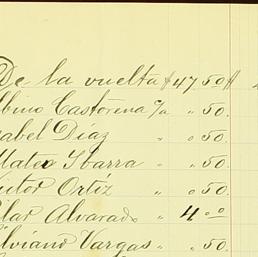 De la vuelta $ 47 50 $
lbino Castorena c/a " 50.
sabel Díaz " " 50.
Mateo Ibarra " " 50.
ictor Ortíz " " 50.
ilar Alvarado " 4 00
ilviano Vargas " " 50.